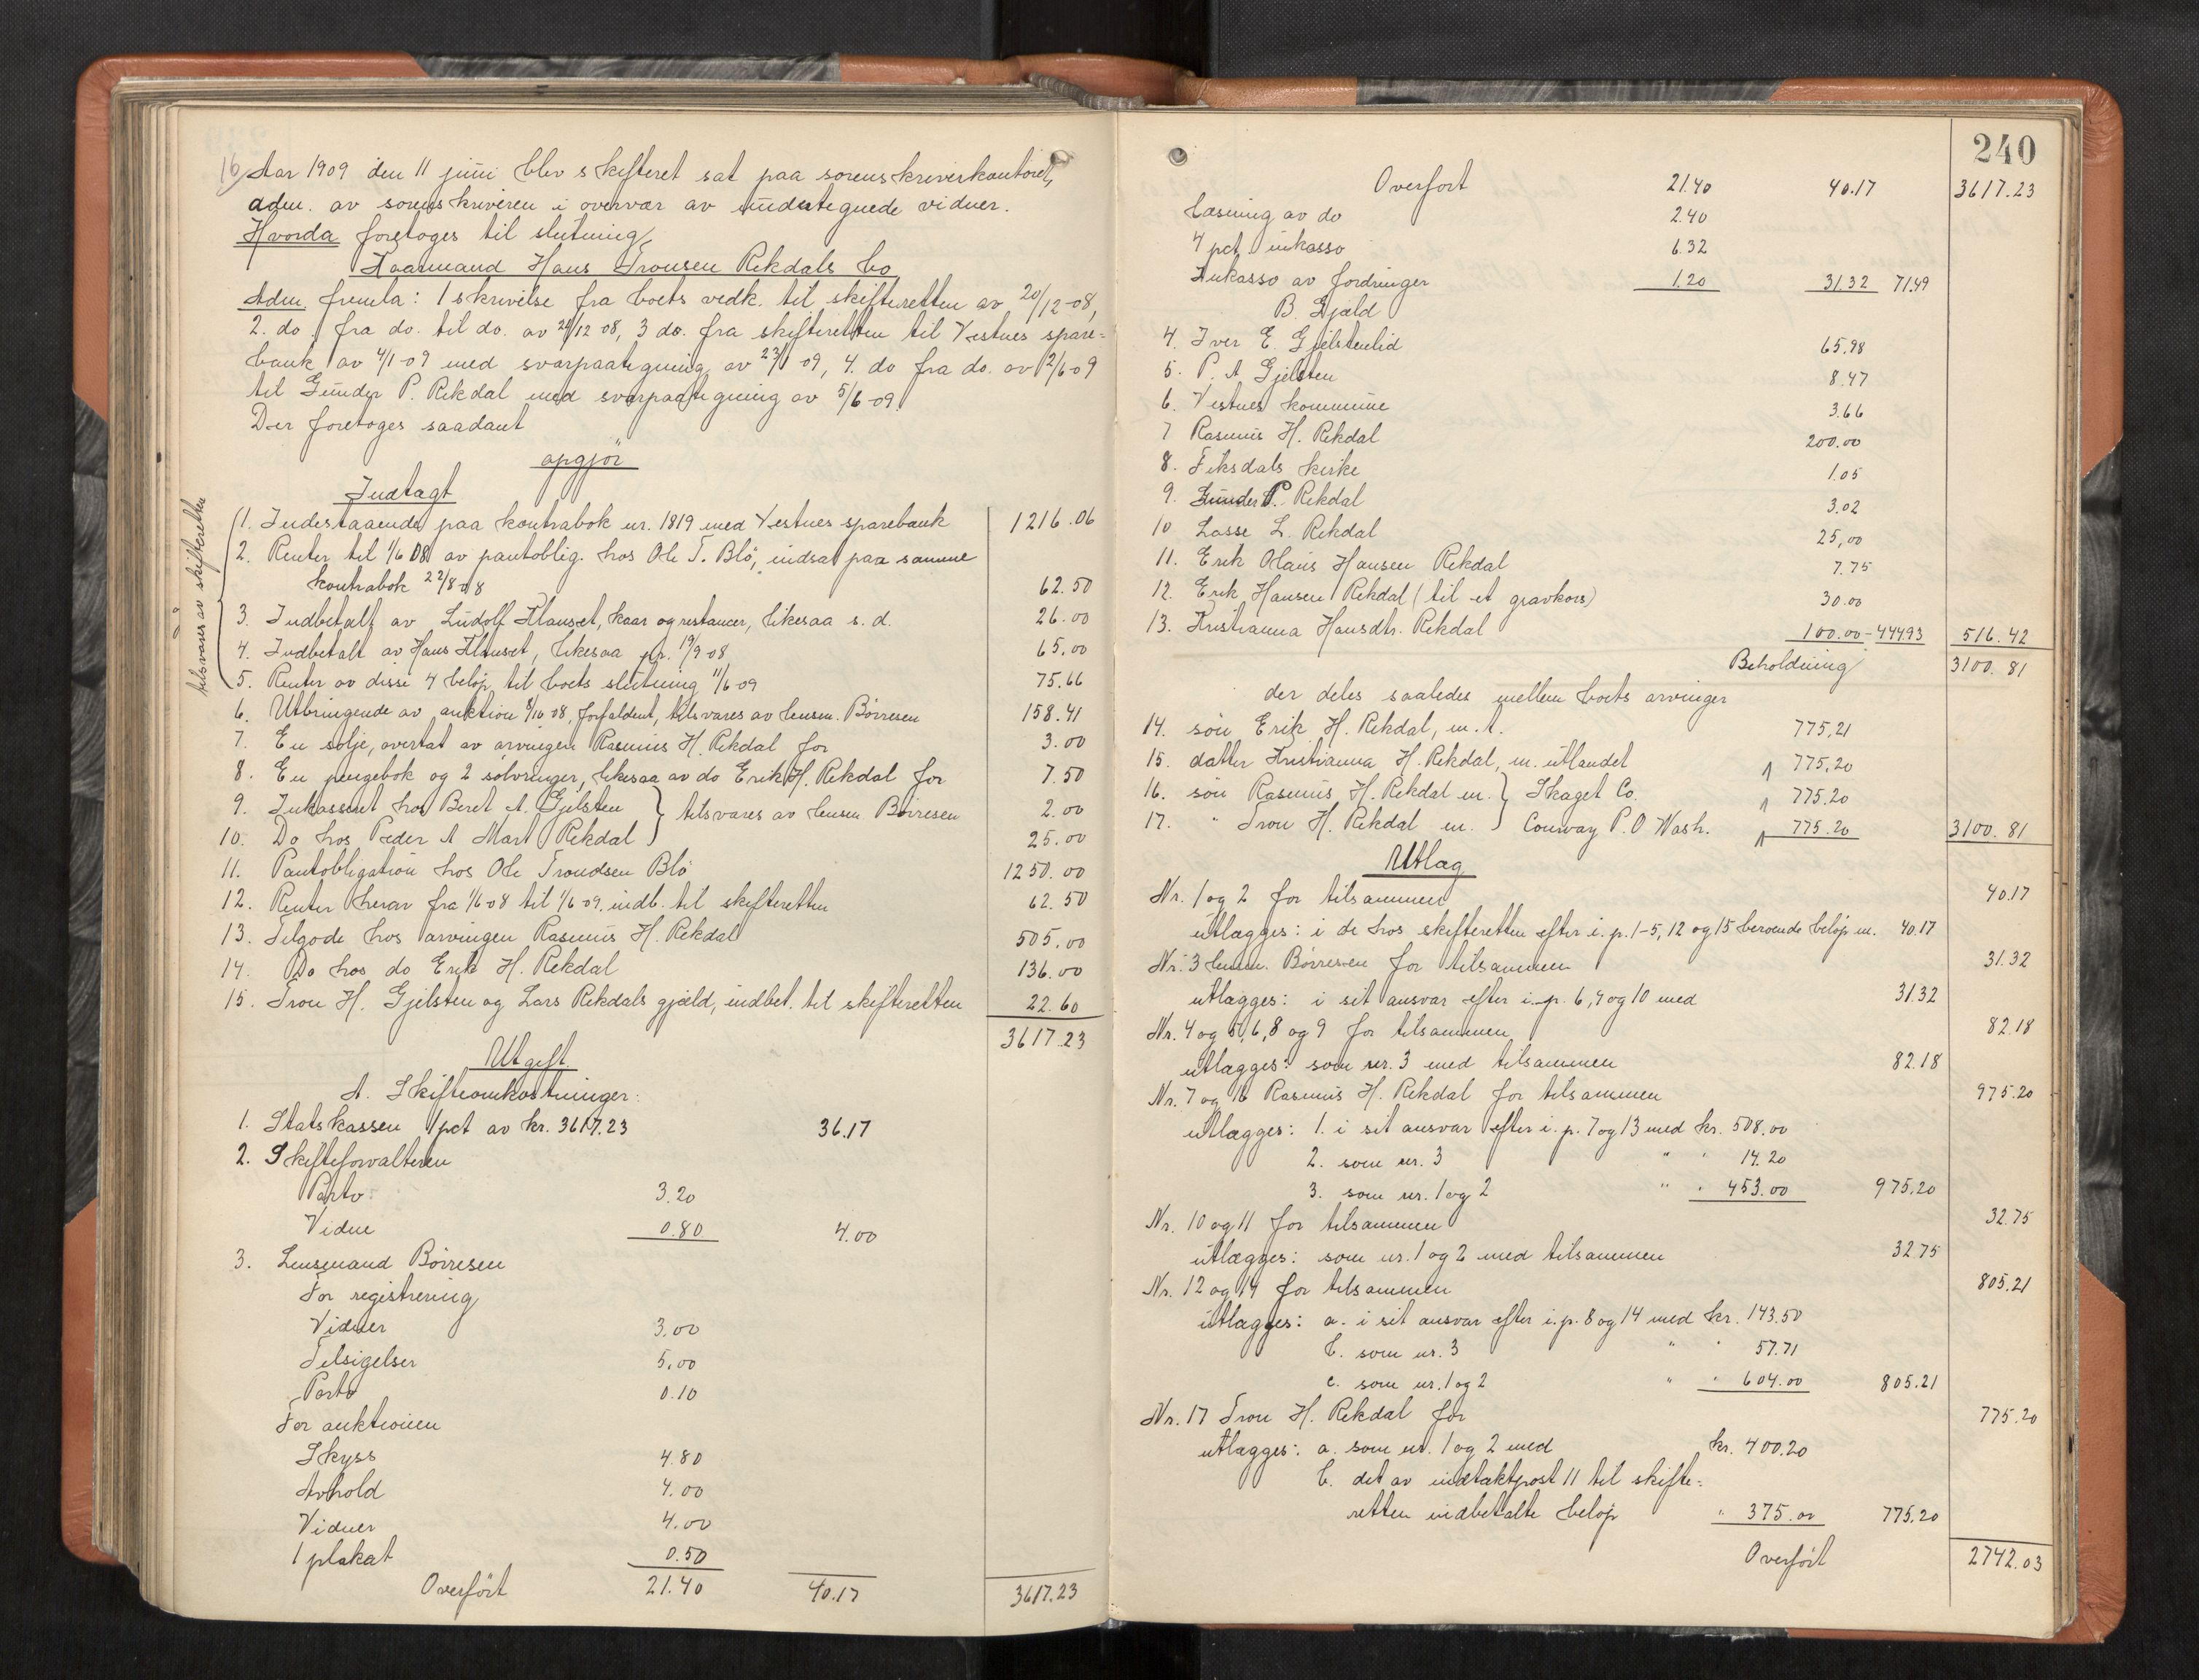 16) Aar 1909 den 11 juni blev skifteret sat paa sorenskriverkontoret,
adm. av sorenskriveren i overvær av undertegnede vidner.
Hvorda foretoges til slutning
Kaarmand Hans Tronsen Rekdals bo
Adm. fremla: 1 skrivelse fra boets vedk. til skifteretten av 20/12-08,
2. do fra do. til do. av 21/12 08, 3 do. fra skifteretten til Vestnes spare=
bank av 4/1-09 med svarpaategning av 23/1 09, 4. do fra do. av 2/6-09
til Gunder P. Rekdal med svarpaategning av 5/6-09.
Der foretoges saadant
opgjör
Indtægt
tilsvares av skifteretten
1. Indestaaende paa kontrabok nr. 1819 med Vestnes sparebank 1216.06
2. Renter til 1/6 08 av pantoblig. hos Ole T. Blö, indsat paa samme
kontrabok 22/8-08 62.50
3. Indbetalt av Ludolf Klauset, kaar og restancer, likesaa s. d. 26.00
4. Indbetalt av Hans Klauset, likesaa pr. 19/9-08 65.00
5. Renter av disse 4 belöp til boets slutning 11/6-09 75.66
6. Utbringende av auktion 8/10 08, forfaldent, tilsvares av lensm. Börresen 158.41
7. En sölje, overtat av arvingen Rasmus H. Rekdal for 3.00
8. En pengebok og 2 sölvringer, likesaa av do Erik H. Rekdal for 7.50
9. Inkasseret hos Beret A. Gjelsten } tilsvares av lensm Börresen 2.00
10. Do hos Peder A Mart Rekdal 25.00
11. Pantobligation hos Ole Trondsen Blö 1250.00
12. Renter herav fra 1/6-08 til 1/6-09. indb. til skifteretten 62.50
13. Tilgode hos arvingen Rasmus H. Rekdal 505.00
14. Do hos do Erik H. Rekdal 136.00
15. Tron H. Gjelsten og Lars Rekdals gjæld, indbet. til skifteretten 22.60
3617.23
Utgift.
A. Skifteomkostninger:
1. Statskassen 1 pct av kr. 3617.23 36.17
2. Skifteforvalteren
Porto 3.20
Vidne 0.80 4.00
3. Lensmand Börresen
For registrering
Vidner 3.00
Tilsigelser 5.00
Porto 0.10
For auktionen
Skyss 4.80
Avhold 4.00
Vidner 4.00
1 plakat 0.50
Overfört 21.40 40.17 3617.23
240
Overfört 21.40 40.17 3617.23
Læsning av do 2.40
4 pct. inkasso 6.32
Inkasso av fordringer 1.20 31.32 71.49
B. Gjæld
4. Iver E. Gjelstenlid 65.98
5. P. A Gjelsten 8.47
6. Vestnes kommune 3.66
7 Rasmus H. Rekdal 200.00
8. Fiksdals kirke 1.05
9. Gunder P. Rekdal 3.02
10. Lasse L. Rekdal 25,00
11. Erik Olaus Hansen Rekdal 7.75
12. Erik Hansen Rekdal (til et gravkors) 30.00
13. Kristianna Hansdtr. Rekdal 100.00 - 444.93 516.42
Beholdning 3100.81
der deles saaledes mellem boets arvinger
14. sön Erik H. Rekdal, m. A. 775,21
15. datter Kristianna H. Rekdal, m. utlandet 775,20
16. sön Rasmus H. Rekdal m. } Skaget Co. 775.20
17. " Tron H. Rekdal m. Conway P.O Wash. 775.20 3100.81
Utlæg
Nr. 1 og 2 for tilsammen 40.17
utlægges: i de hos skifteretten efter i. p. 1-5, 12 og 15 beroende belöp m. 40.17
Nr. 3 lensm. Börresen for tilsammen 31.32
utlægges: i sit ansvar efter i. p. 6, 9 og 10 med 31.32
Nr. 4 og 5, 6, 8 og 9 for tilsammen 82.18
utlægges: som nr. 3 med tilsammen 82.18
Nr. 7 og 16 Rasmus H. Rekdal for tilsammen 975.20
utlægges: 1. i sit ansvar efter i. p. 7 og 13 med kr. 508.00
2. som nr. 3 " " 14.20
3. som nr. 1 og 2 " " 453.00 975.20
Nr. 10 og 11 for tilsammen 32.75
utlægges: som nr. 1 og 2 med tilsammen 32.75
Nr. 12 og 14 for tilsammen 805.21
utlægges: a. i sit ansvar efter i. p. 8 og 14 med kr. 143.50
b. som nr. 3 " " 57.71
c. som nr. 1 og 2 " " 604.00 805.21
Nr. 17 Tron H. Rekdal for 775.20
utlægges: a. som nr. 1 og 2 med kr. 400.20
b. det av indtæktpost 11 til skifte=
retten indbetalte belöp " 375.00 775.20
Overfört 2742.03